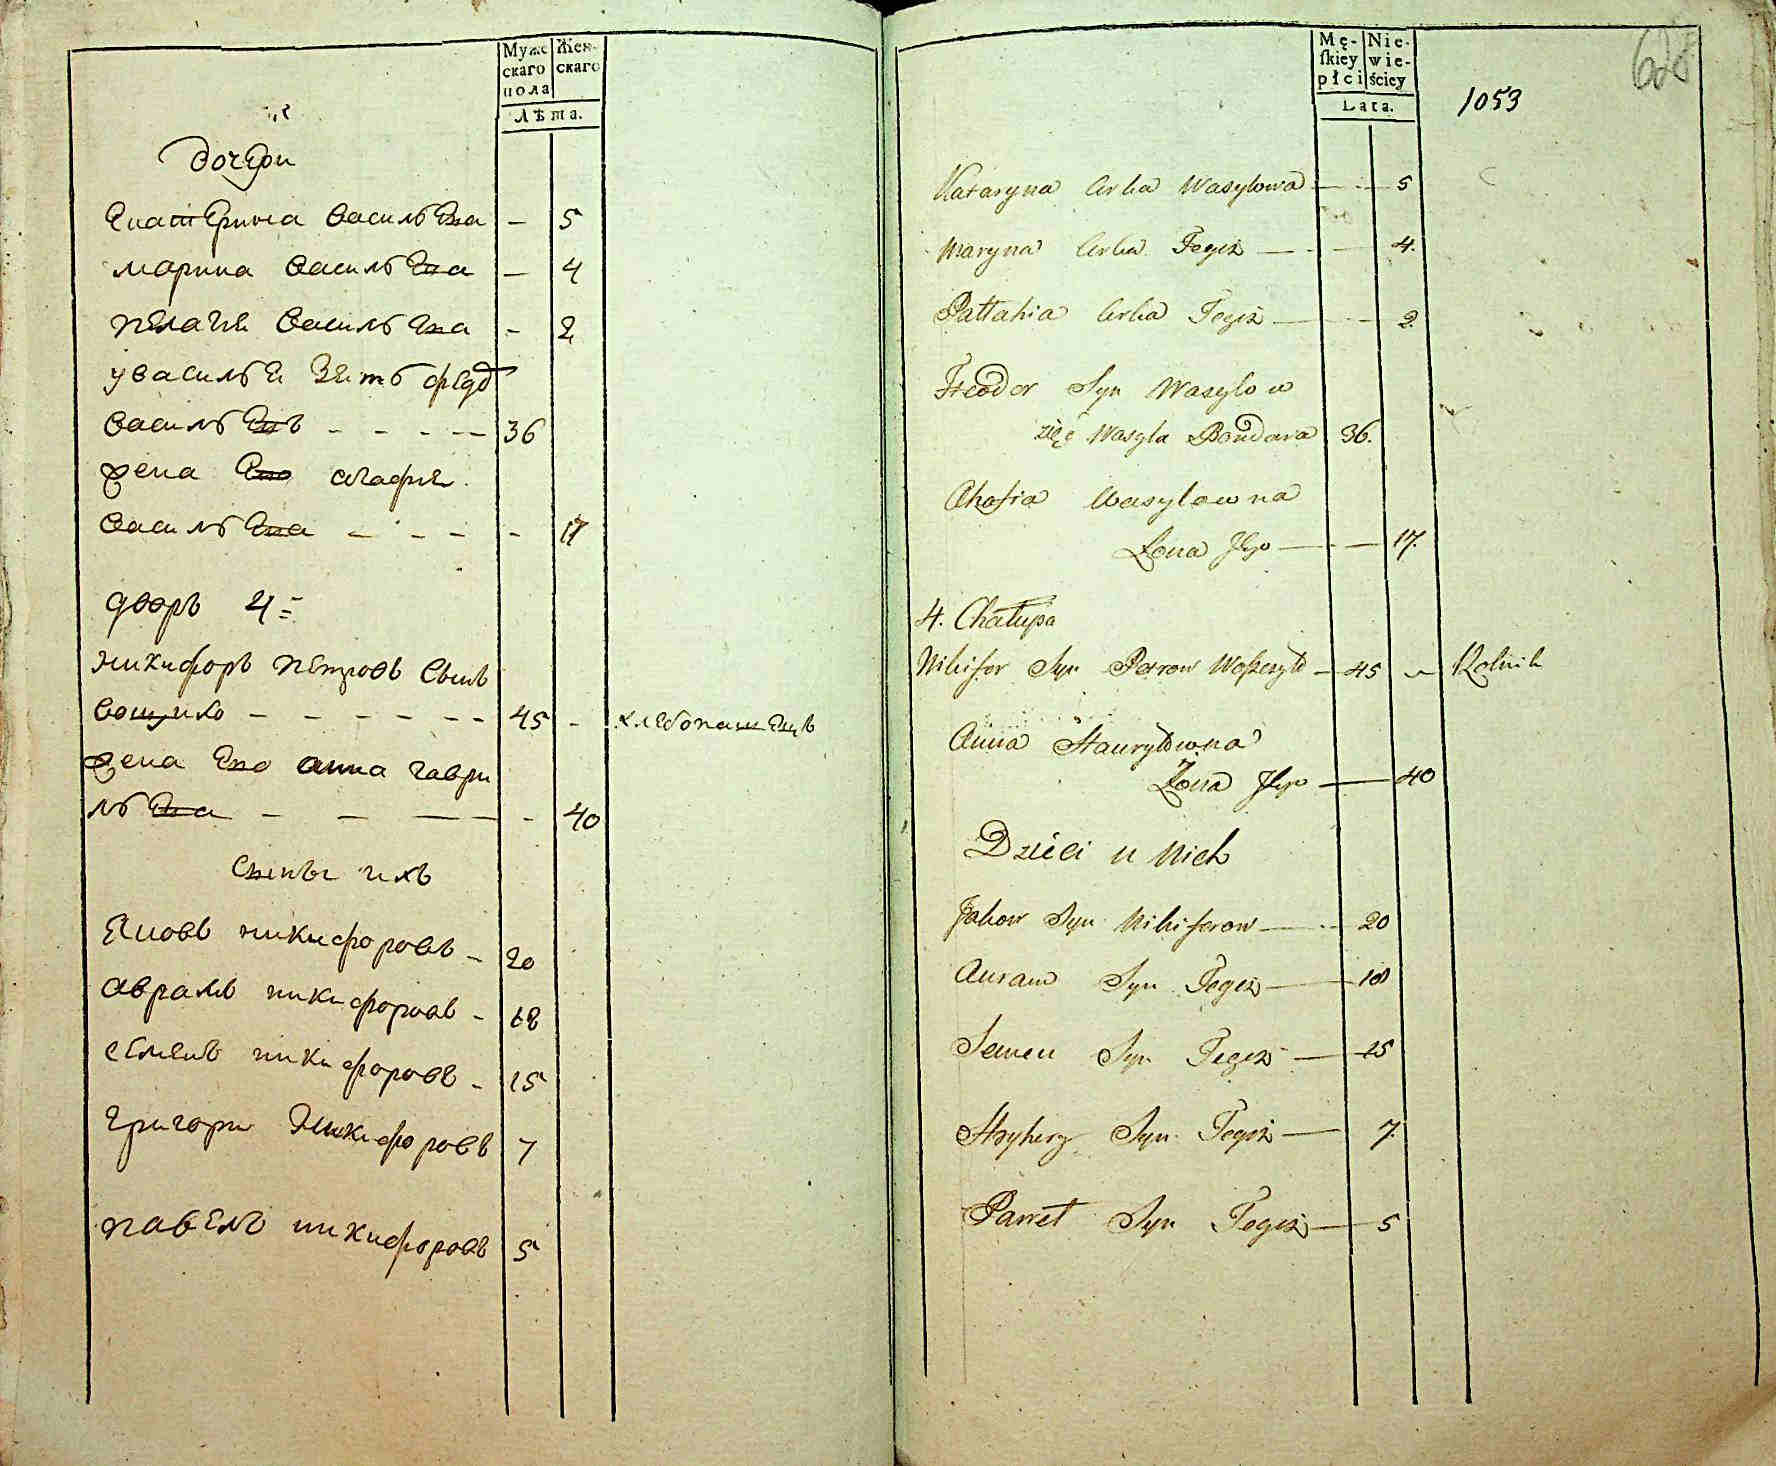 Муже
скаго
пола
Жен-
скаго
Лѣта.
дочери
Екатерина васильева - 5
марина васильева - 4
пелагия васильева - 2
у василья зять федо
васильевъ - - - - 36
жена ево агафия
васильева - - - - 17
дворъ 4
никифоръ петровъ сынъ
вощико - - - - - 45 - хлебопашецъ
жена ево анна гаври
льева - - - - 40
сыны ихъ
яковъ никифоровъ - 20
аврамъ никифоровъ - 18
семенъ никифоровъ - 15
григори никифоровъ 7
павелъ никифоровъ 5
Mę-
skiey
płci
Nie-
wie-
ściey
Lata.
1053
628
Kataryna Crka Wasylowa - 5
Maryna Crka Tegoż - 4.
Pałłahia Crka Tegoż - 2.
Fteodor Syn Wasylow
zięć Wasyla Bondara 36.
Ahafia Wasylowna
Żona Jego - 17.
4. Chałupa
Nikifor Syn Petrow - 45 - Rolnik
Anna Hauryłowna
Żona Jego - 40
Dzieci u Nich
Jakow Syn Nikiforow - 20
Auram Syn Tegoż - 18
Semen Syn Tegoż - 15
Hryhery Syn Tegoż - 7.
Paweł Syn Tegoż - 5